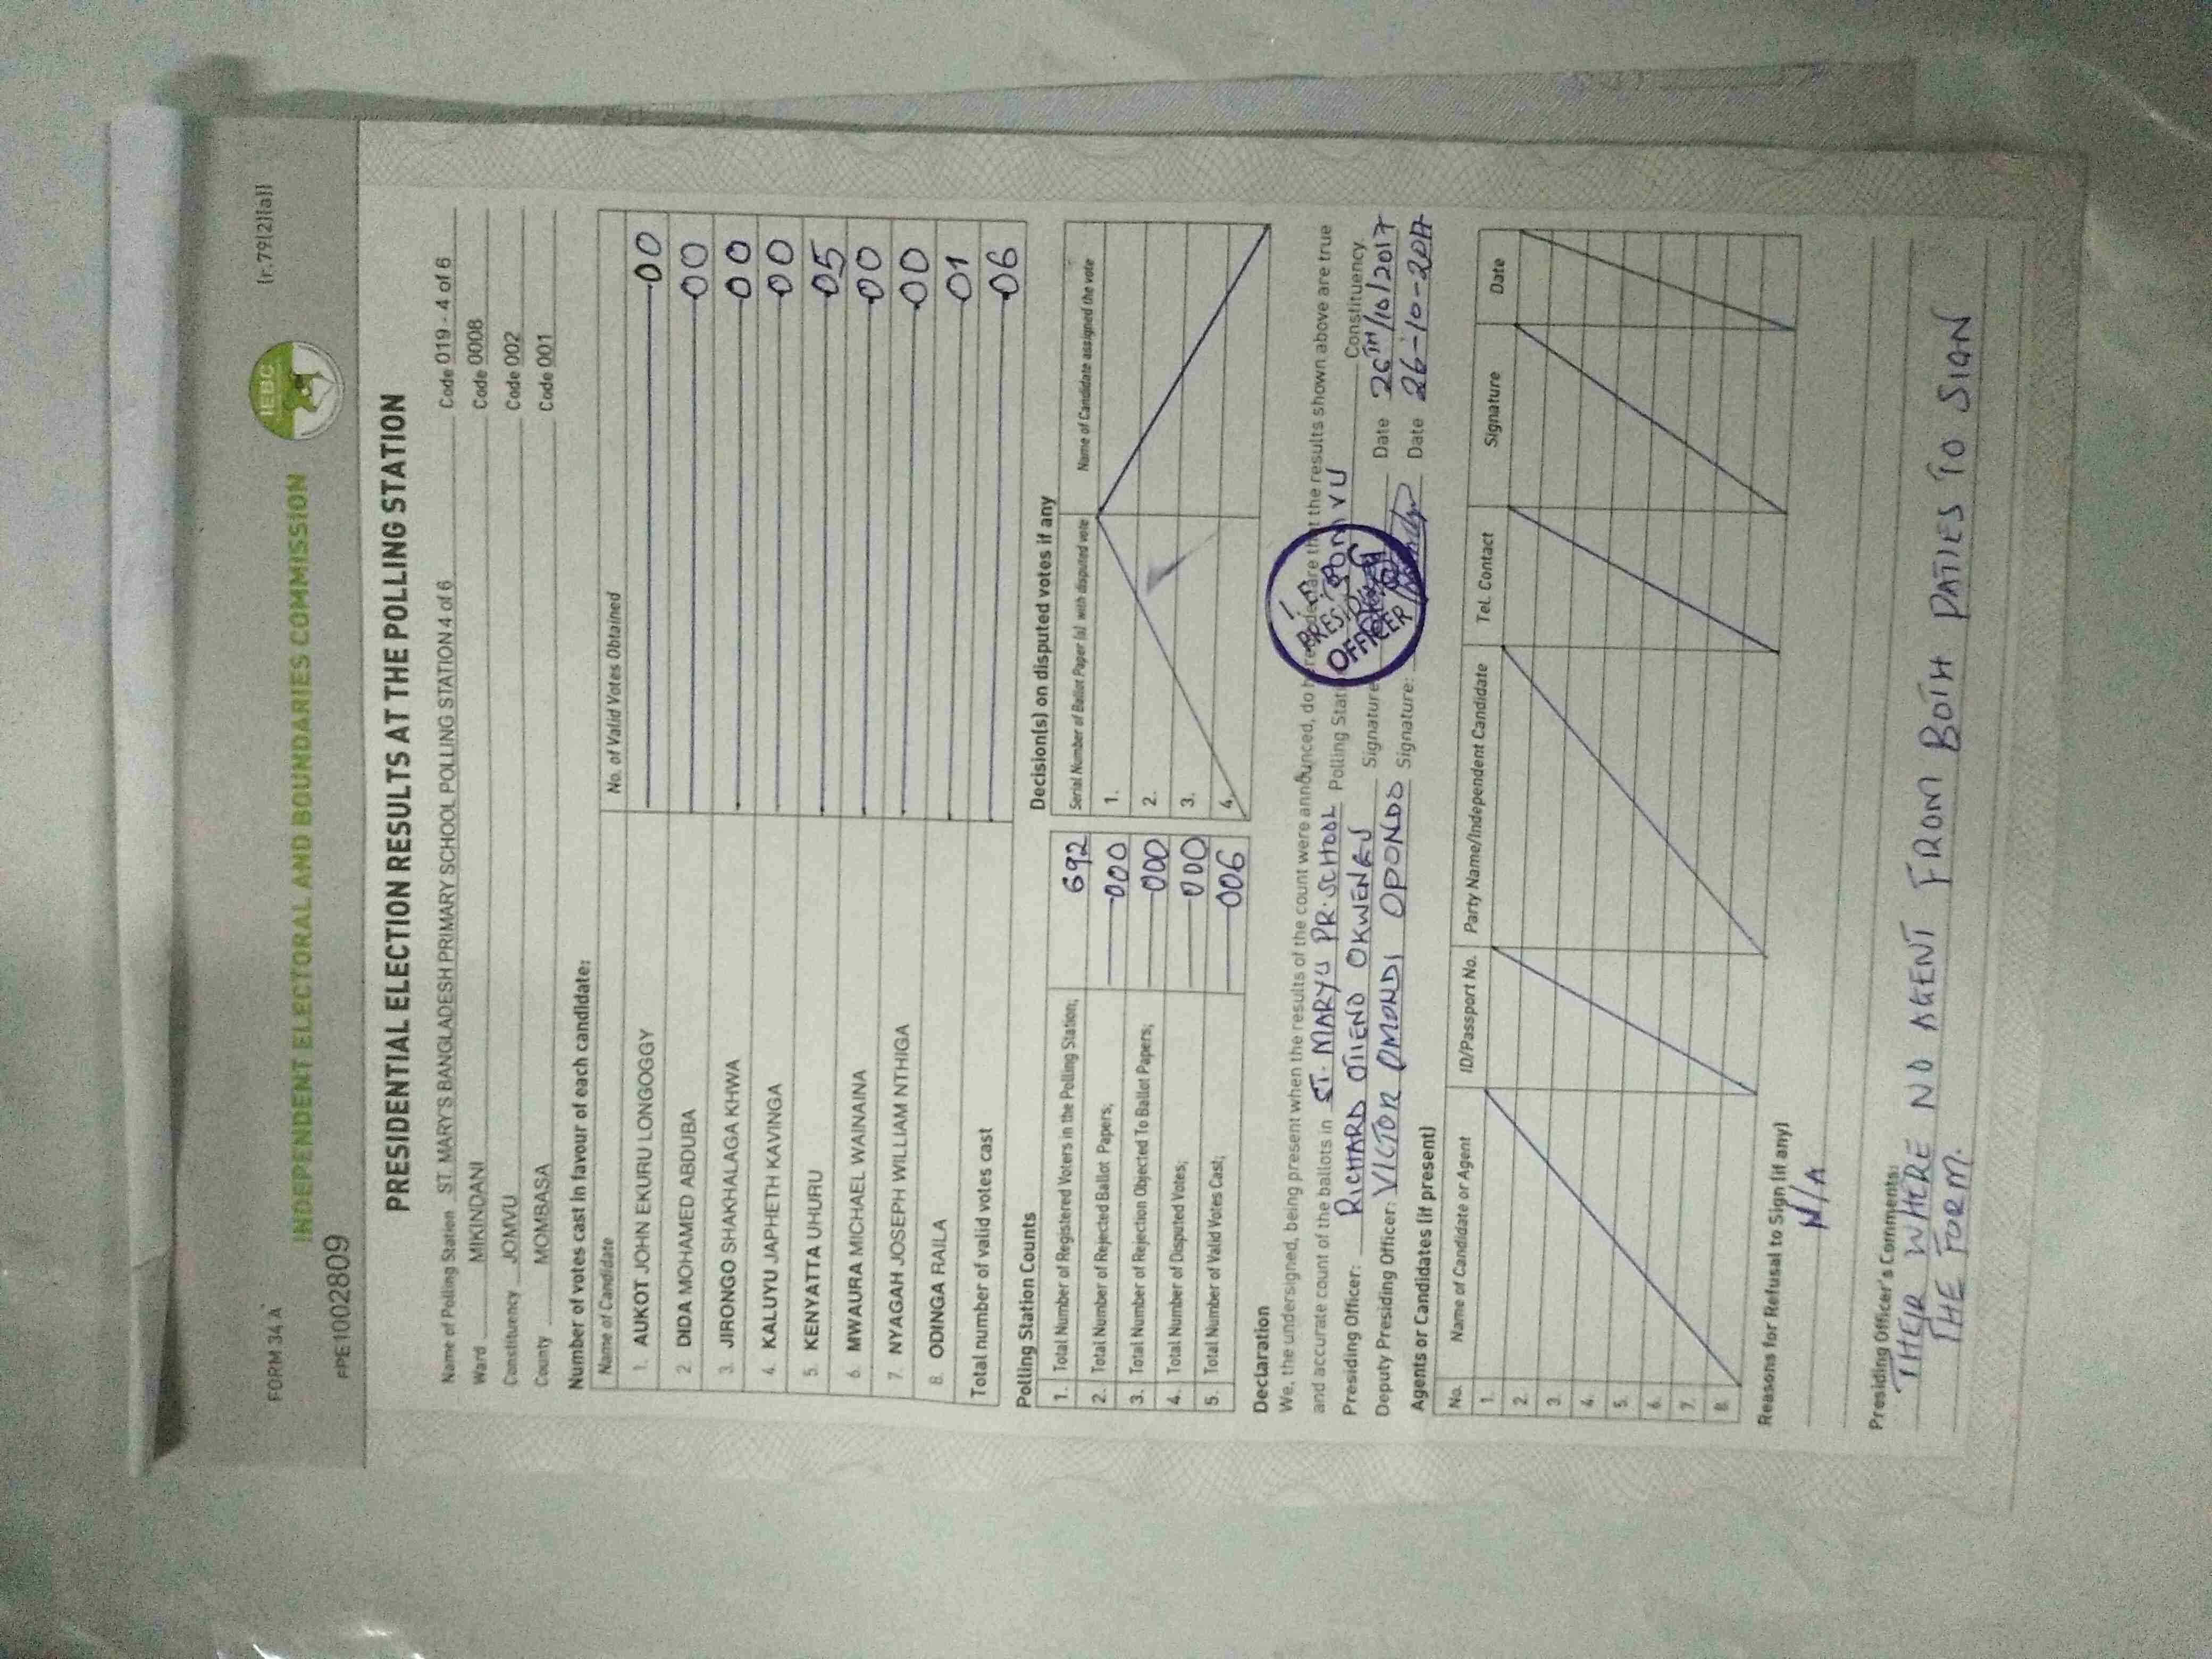 FORM 34 A
(r.79(2)(a))
IEBC
INDEPENDENT ELECTORAL AND BOUNDARIES COMMISSION
PE1002809
PRESIDENTIAL ELECTION RESULTS AT THE POLLING STATION
Name of Polling Station ST. MARY'S BANGLADESH PRIMARY SCHOOL POLLING STATION 4 of 6 Code 019 - 4 of 6
Ward MIKINDANI Code 0008
Constituency JOMVU Code 002
County MOMBASA Code 001
Number of votes cast in favour of each candidate:
Name of Candidate No. of Valid Votes Obtained
1. AUKOT JOHN EKURU LONGOGGY 00
2 DIDA MOHAMED ABDUBA 00
3. JIRONGO SHAKHALAGA KHWA 00
4. KALUYU JAPHETH KAVINGA 00
5. KENYATTA UHURU 05
6. MWAURA MICHAEL WAINAINA 00
7. NYAGAH JOSEPH WILLIAM NTHIGA 00
8. ODINGA RAILA 01
Total number of valid votes cast 06
Polling Station Counts
1. Total Number of Registered Voters in the Polling Station; 692
2. Total Number of Rejected Ballot Papers; 000
3. Total Number of Rejection Objected To Ballot Papers; 000
4. Total Number of Disputed Votes; 000
5. Total Number of Valid Votes Cast; 006
Decision(s) on disputed votes if any
Serial Number of Ballot Paper (s) with disputed vote Name of Candidate assigned the vote
1.
2.
3.
4.
Declaration
We, the undersigned, being present when the results of the count were announced, do that the results shown above are true
and accurate count of the ballots in ST. MARYU PR. SCHOOL Polling Station JOMVU Constituency
Presiding Officer: RICHARD OTIENO Signature Date 26TH/10/2017
Deputy Presiding Officer: VICTOR OMONDI OPONDO Signature: Date 26-10-2017
PRESIDING
OFFICER
Agents or Candidates (if present)
No. Name of Candidate or Agent ID/Passport No. Party Name/Independent Candidate Tel. Contact Signature Date
1.
2.
3.
4.
5.
6.
7.
8.
Reasons for Refusal to Sign (if any)
N/A
Presiding Officer's Comments:
THER WHERE NO AGENT FROM BOTH PATIES TO SIGN
THE FORM.